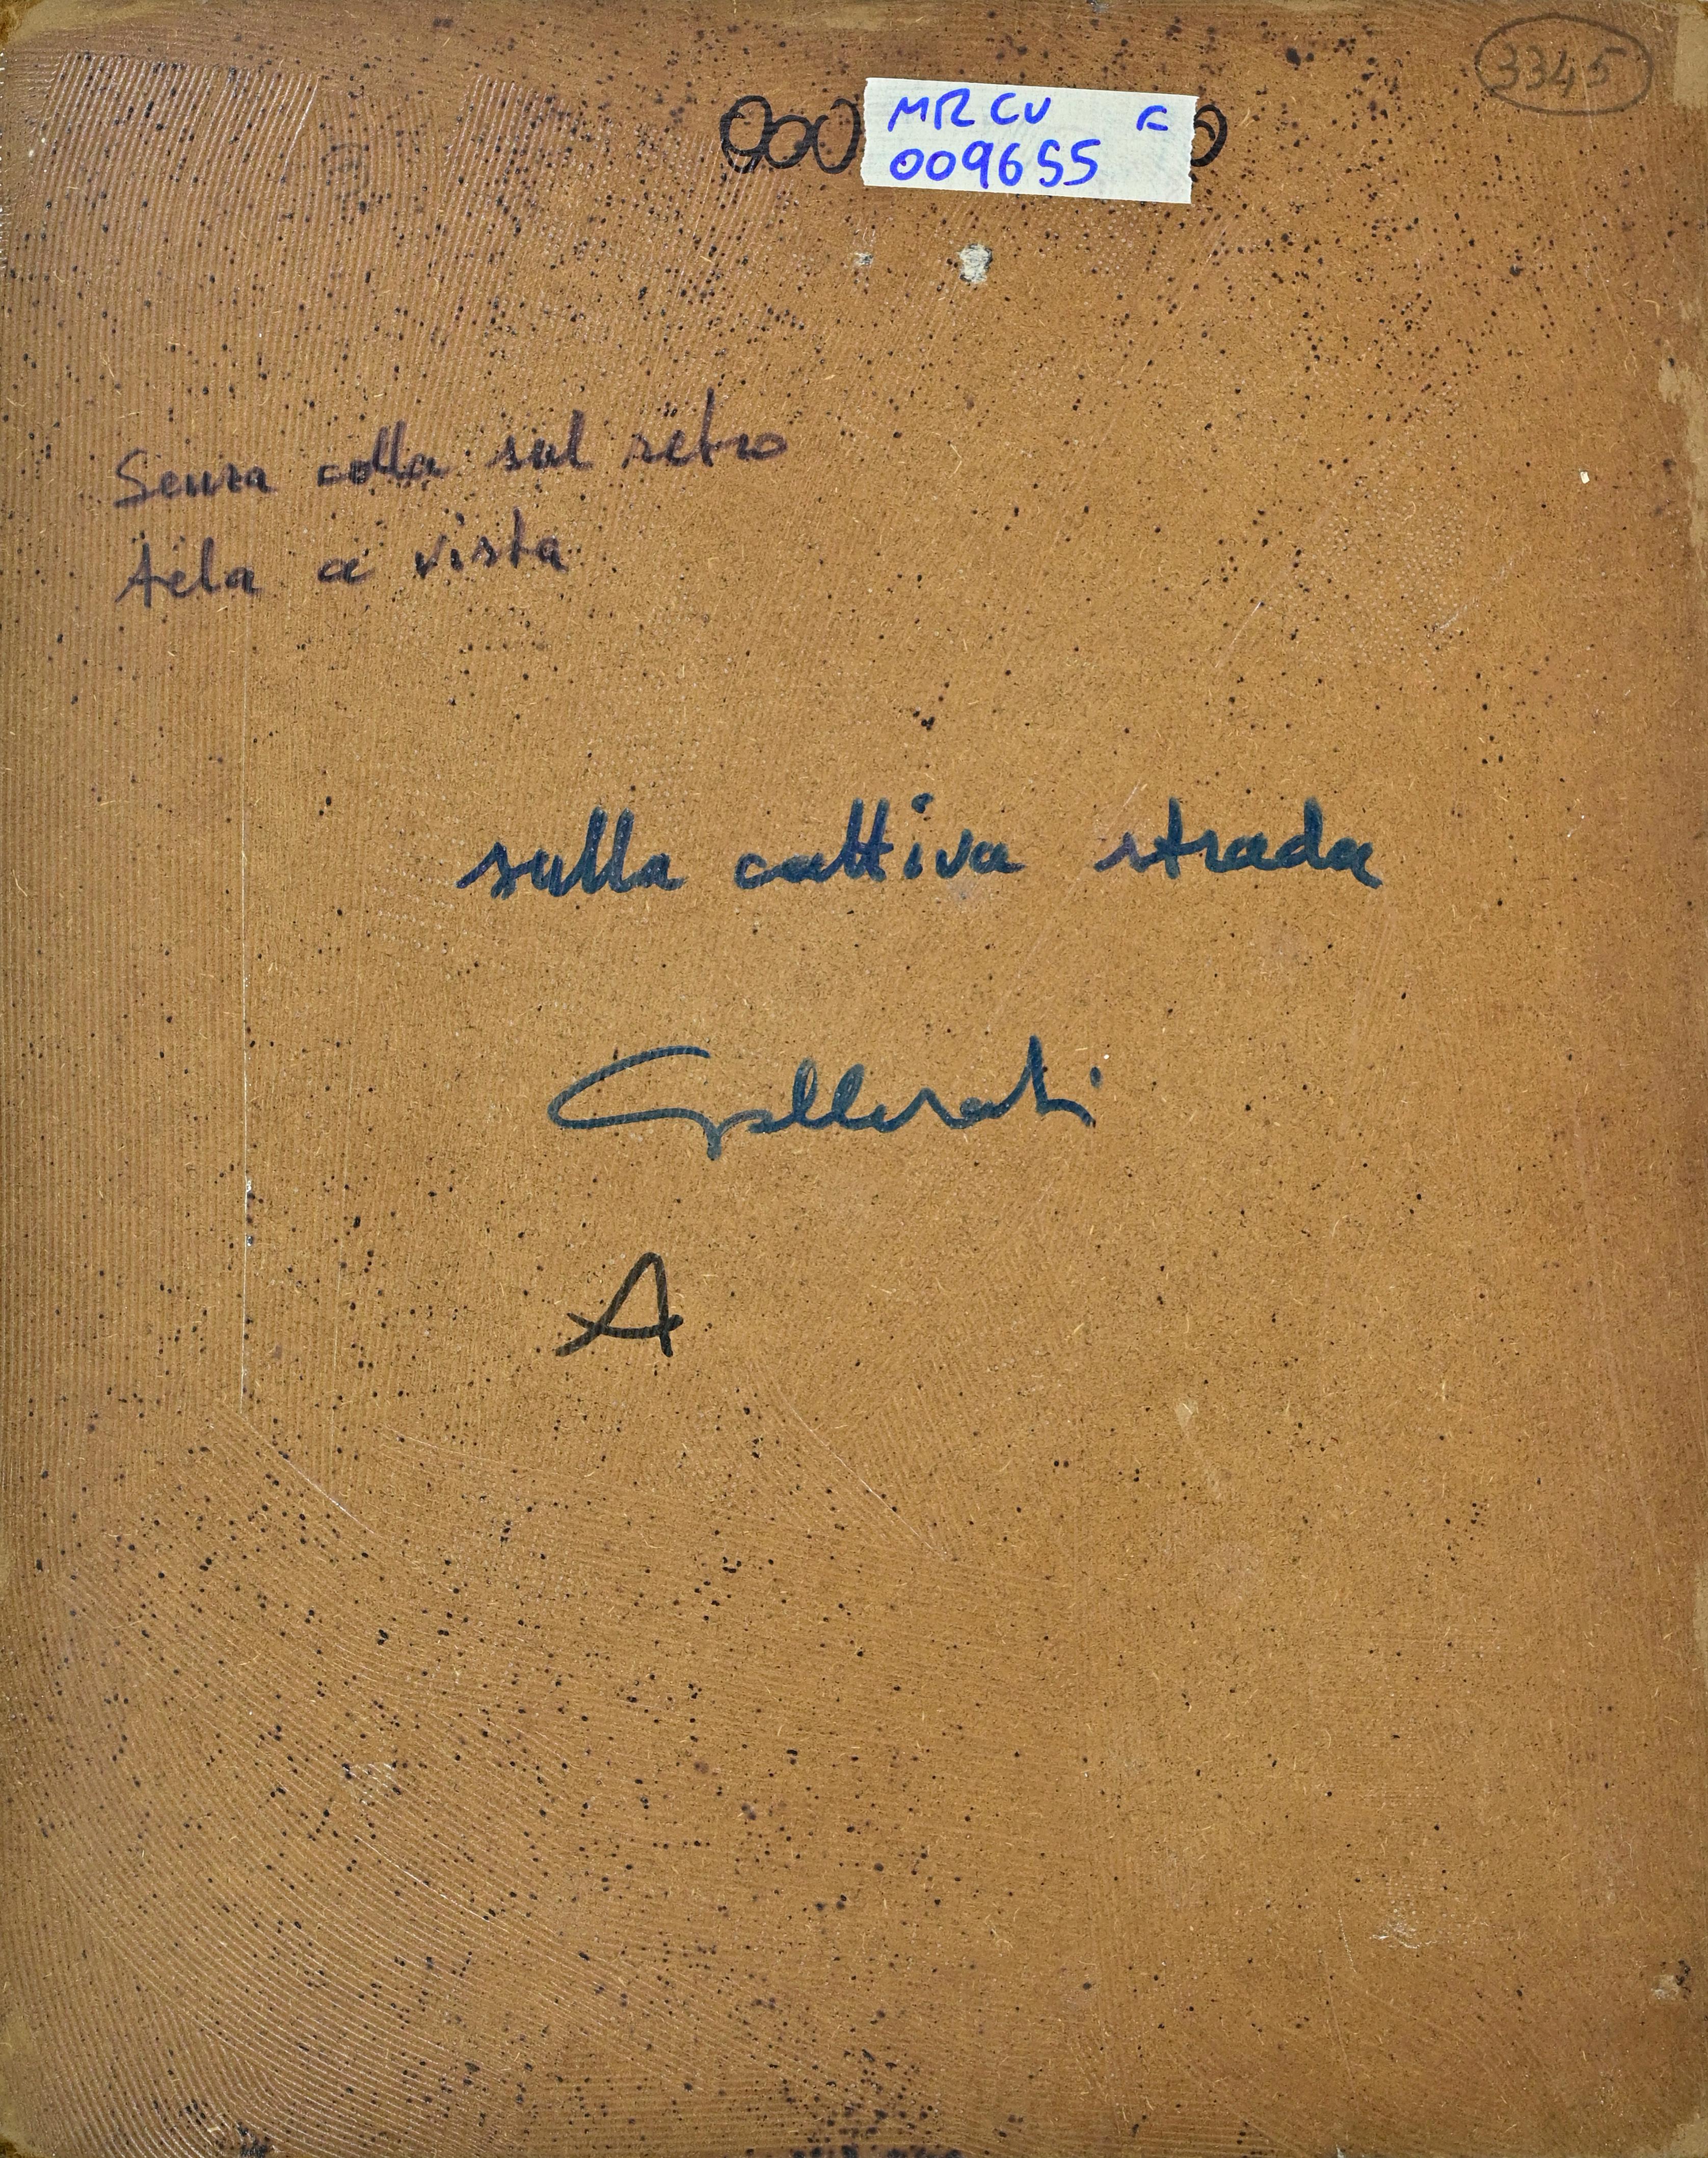 3345
MR CV F
009655
Senza colla sul retro
tela a vista
sulla cattiva strada
Gallerati
A